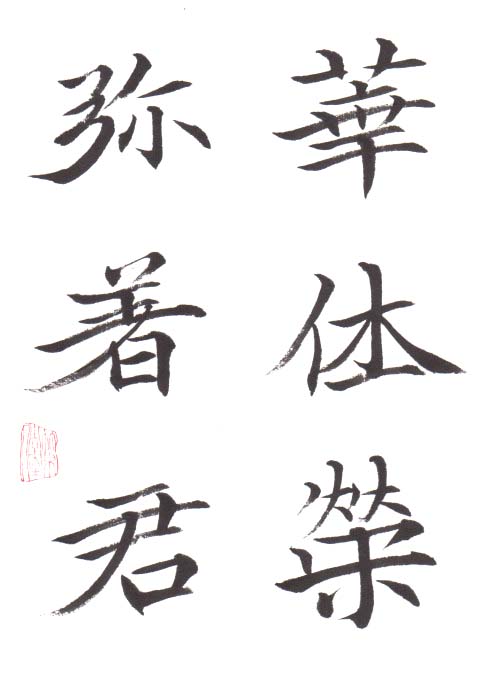 華体榮
弥著君